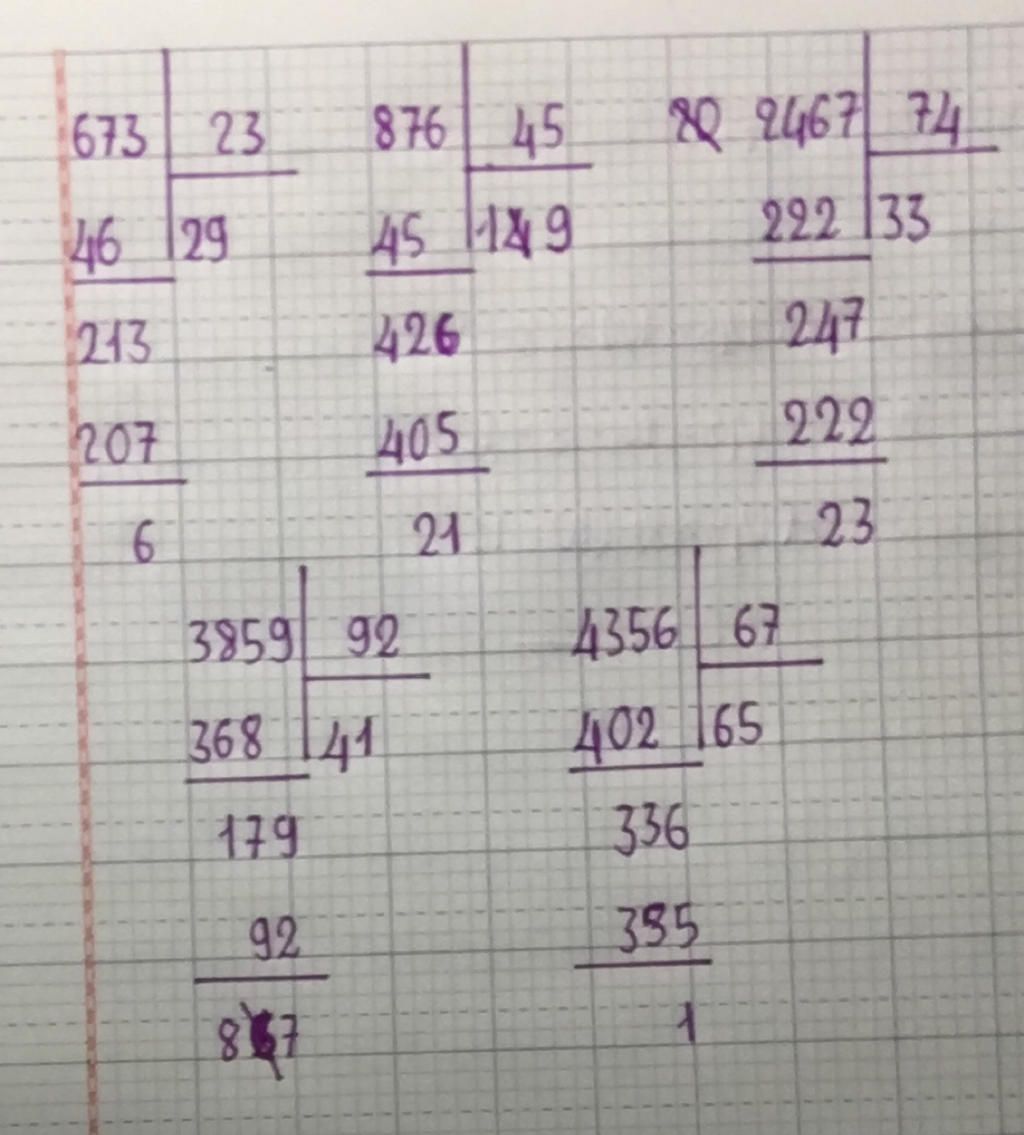 673 23
46 29
213
207
6
876 45
45 19
426
405
21
2467 74
222 33
247
222
23
3859 92
368 41
179
92
87
4356 67
402 65
336
335
1